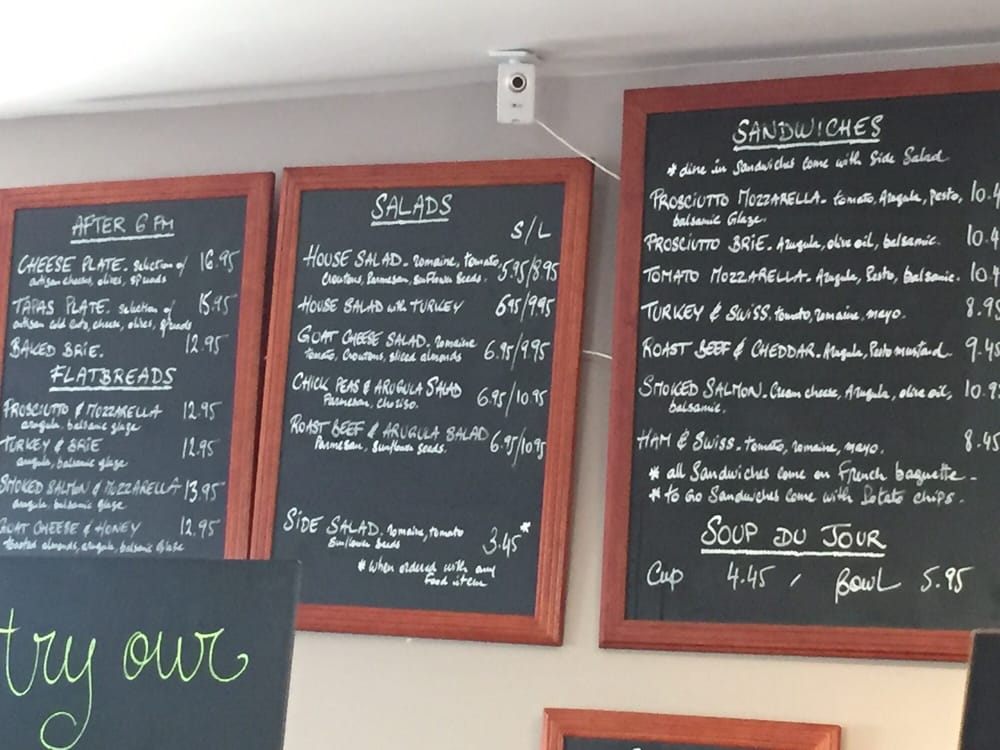 AFTER 6 PM
CHEESE PLATE. selection of 16.95
artisan cheeses, olives, spreads
TAPAS PLATE. selection of 15.95
artisan cold cuts, cheese, olives, spreads
BAKED BRIE. 12.95
FLATBREADS
PROSCIUTTO & MOZZARELLA 12.95
arugula, balsamic glaze
TURKEY & BRIE 12.95
arugula, balsamic glaze
SMOKED SALMON & MOZZARELLA 13.95
arugula, balsamic glaze
GOAT CHEESE & HONEY 12.95
toasted almonds, arugula, balsamic glaze
try our
SALADS
S/L
HOUSE SALAD. romaine, tomato, 5.95/8.95
Croutons, Parmesan, Sunflower Seeds.
HOUSE SALAD with TURKEY 6.95/9.95
GOAT CHEESE SALAD. romaine
tomato, Croutons, sliced almonds 6.95/9.95
CHICK PEAS & ARUGULA SALAD
Parmesan, chorizo. 6.95/10.95
ROAST BEEF & ARUGULA SALAD
Parmesan, Sunflower Seeds. 6.95/10.95
SIDE SALAD. romaine, tomato
Sunflower Seeds 3.45*
* when ordered with any
food item
SANDWICHES
* dine in Sandwiches come with Side Salad
PROSCIUTTO MOZZARELLA. tomato, Arugula, Pesto, 10.4
balsamic Glaze.
PROSCIUTTO BRIE. Arugula, olive oil, balsamic. 10.4
TOMATO MOZZARELLA. Arugula, Pesto, balsamic. 10.4
TURKEY & SWISS. tomato, romaine, mayo. 8.95
ROAST BEEF & CHEDDAR. Arugula, Pesto mustard. 9.45
SMOKED SALMON. Cream cheese, Arugula, olive oil, 10.9
balsamic.
HAM & SWISS. tomato, romaine, mayo. 8.45
* all Sandwiches come on French baguette.
* to go Sandwiches come with Potato chips.
SOUP DU JOUR
Cup 4.45 / Bowl 5.95